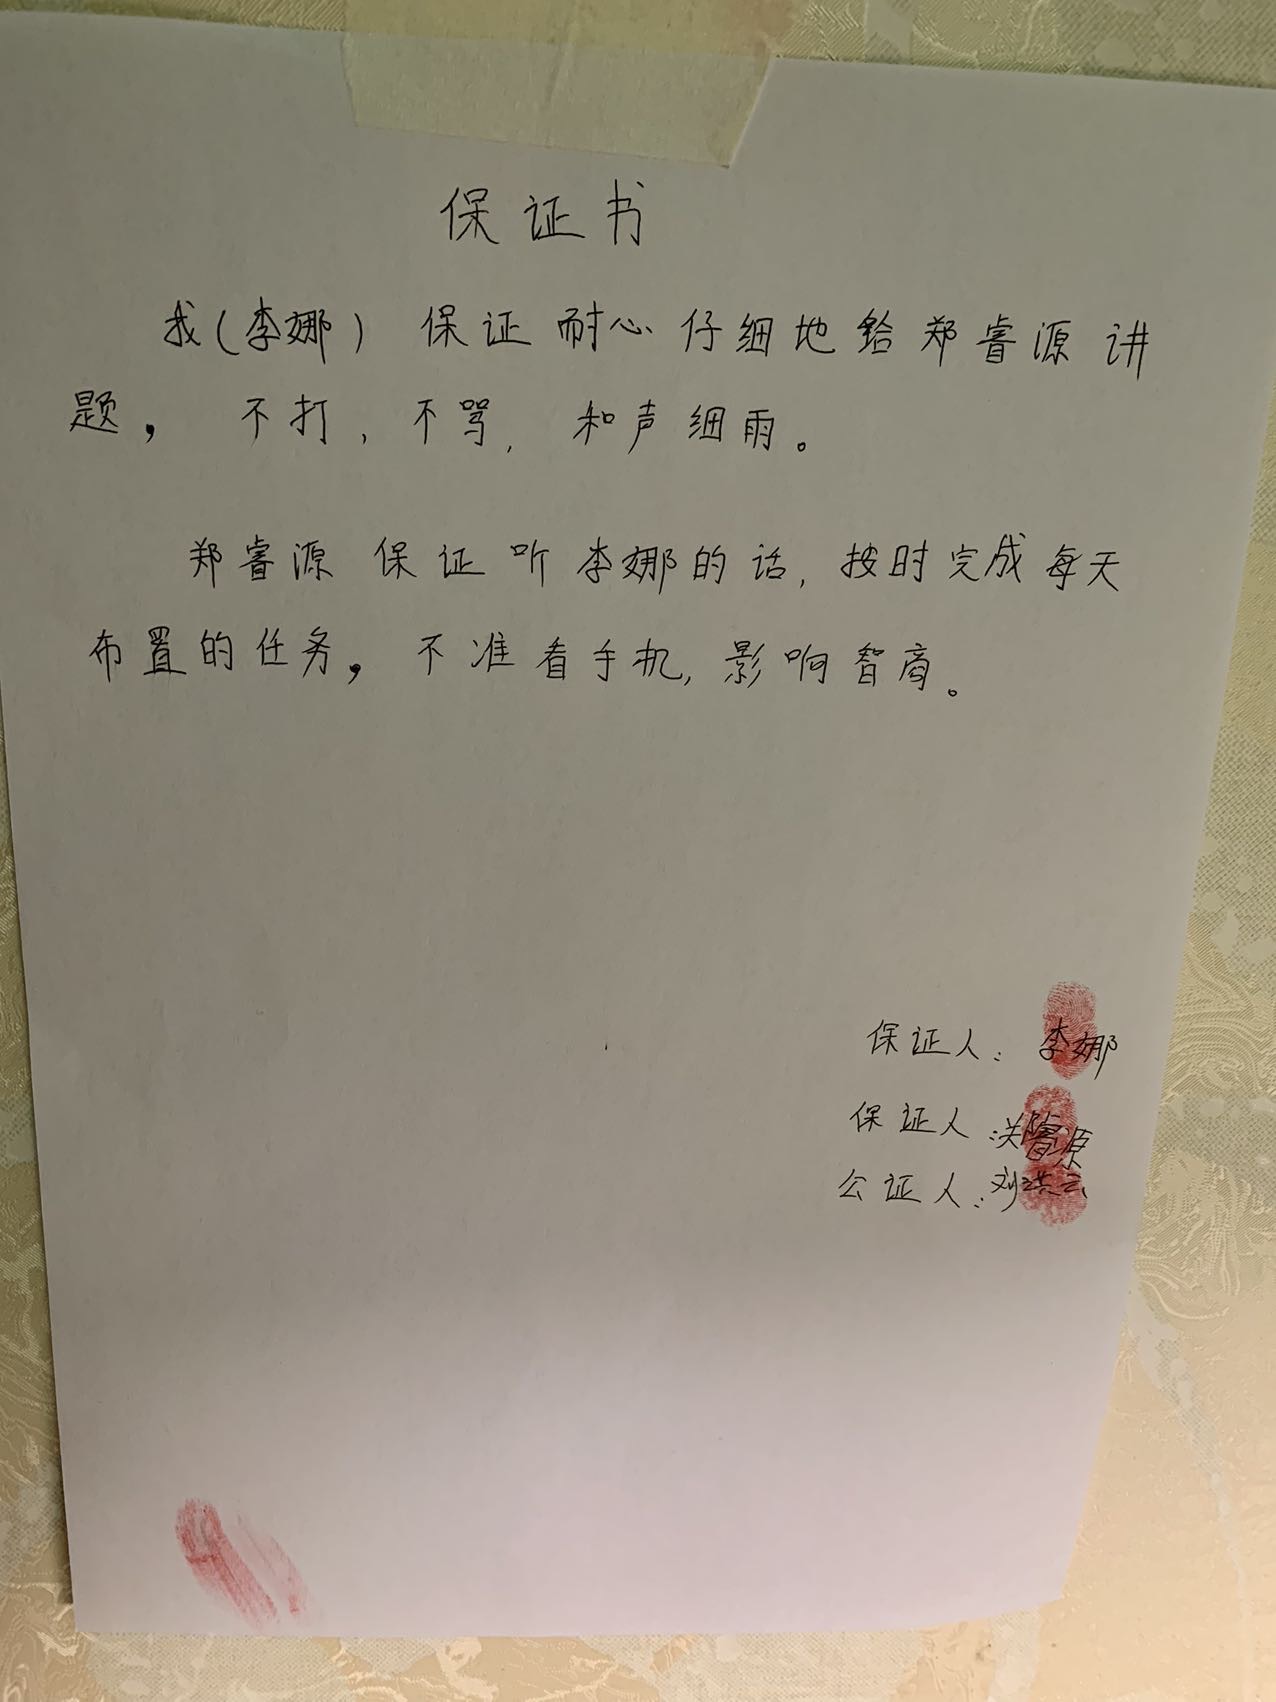 保证书
我(李娜) 保证耐心仔细地给郑睿源讲
题，不打，不骂，和声细雨。
郑睿源 保证听李娜的话，按时完成每天
布置的任务，不准看手机，影响智商。
保证人：李娜
保证人：郑睿源
公证人：刘洪云